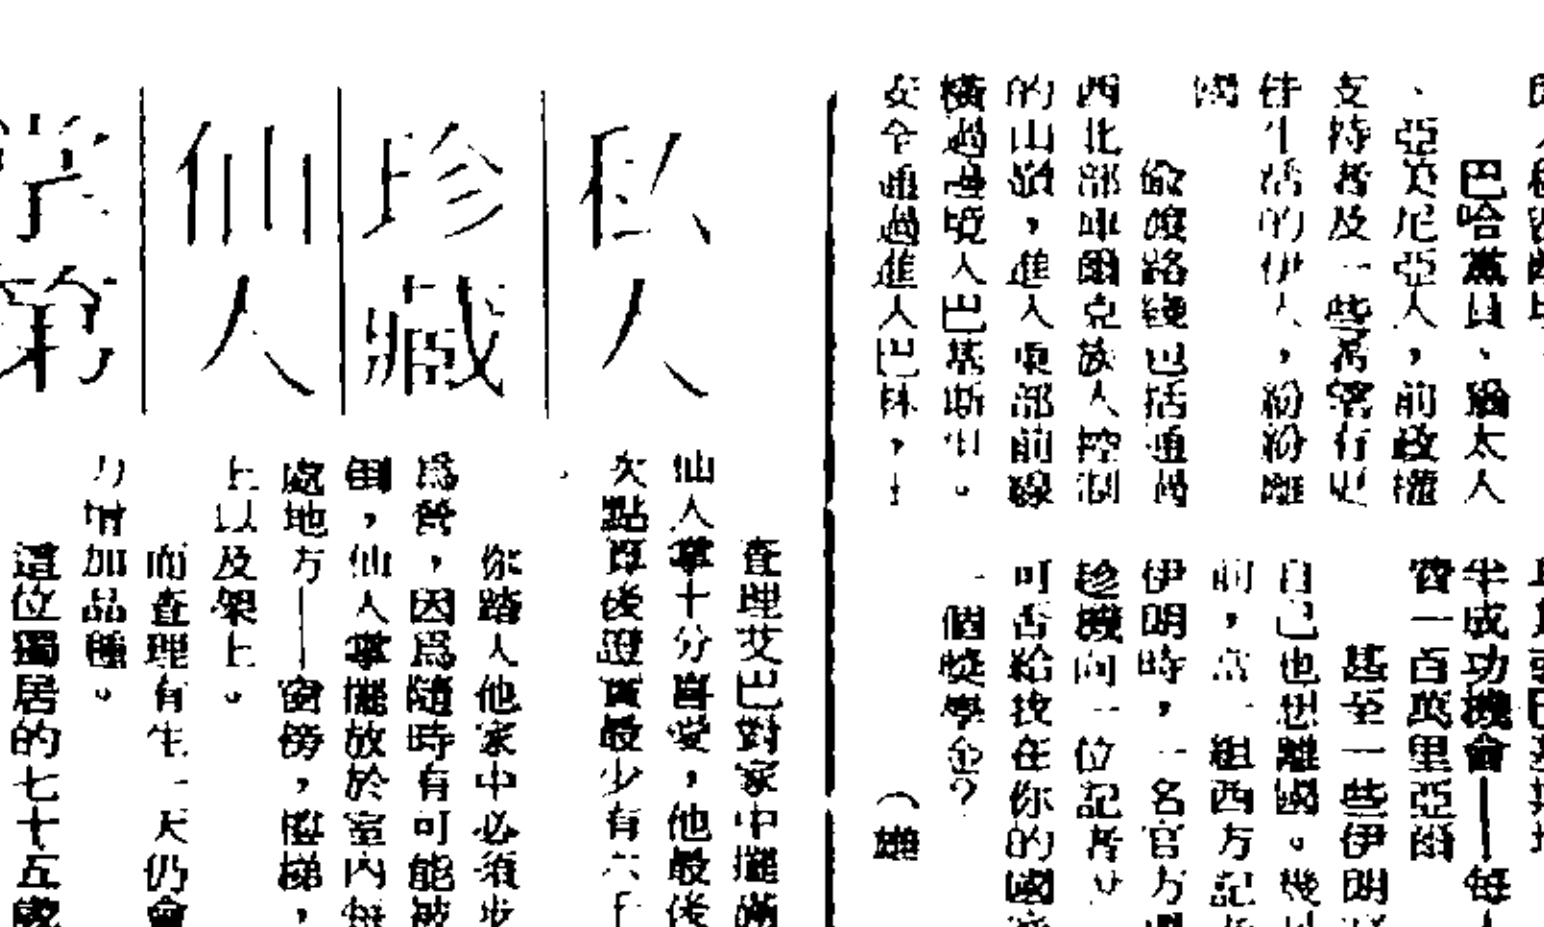 巴哈萬員、猶太人
、亞美尼亞人，前政權
支持者及一些希望有更
佳生活的伊人，紛紛離
國
偷渡路綫包括通過
西北部庫爾克族人控制
的山嶺，進入東部前線
橫過邊境入巴基斯坦。
安全通過進入巴林，土
半成功機會——每人
費一百萬里亞爾
甚至一些伊朗
自己也想離國。幾
前，當一組西方記
伊朗時，一名官方
趁機向一位記者
可否給技在你的國
一個獎學金？
（雄
私人
珍藏
仙人
掌第
查理艾巴對家中擺滿
仙人掌十分喜愛，他最後
次點算後證實最少有六千
。
你踏入他家中必須步
爲營，因爲隨時有可能被
倒，仙人掌擺放於室內每
處地方——窗傍，樓梯，
上以及架上。
而查理有生一天仍會
力增加品種。
這位獨居的七十五歲